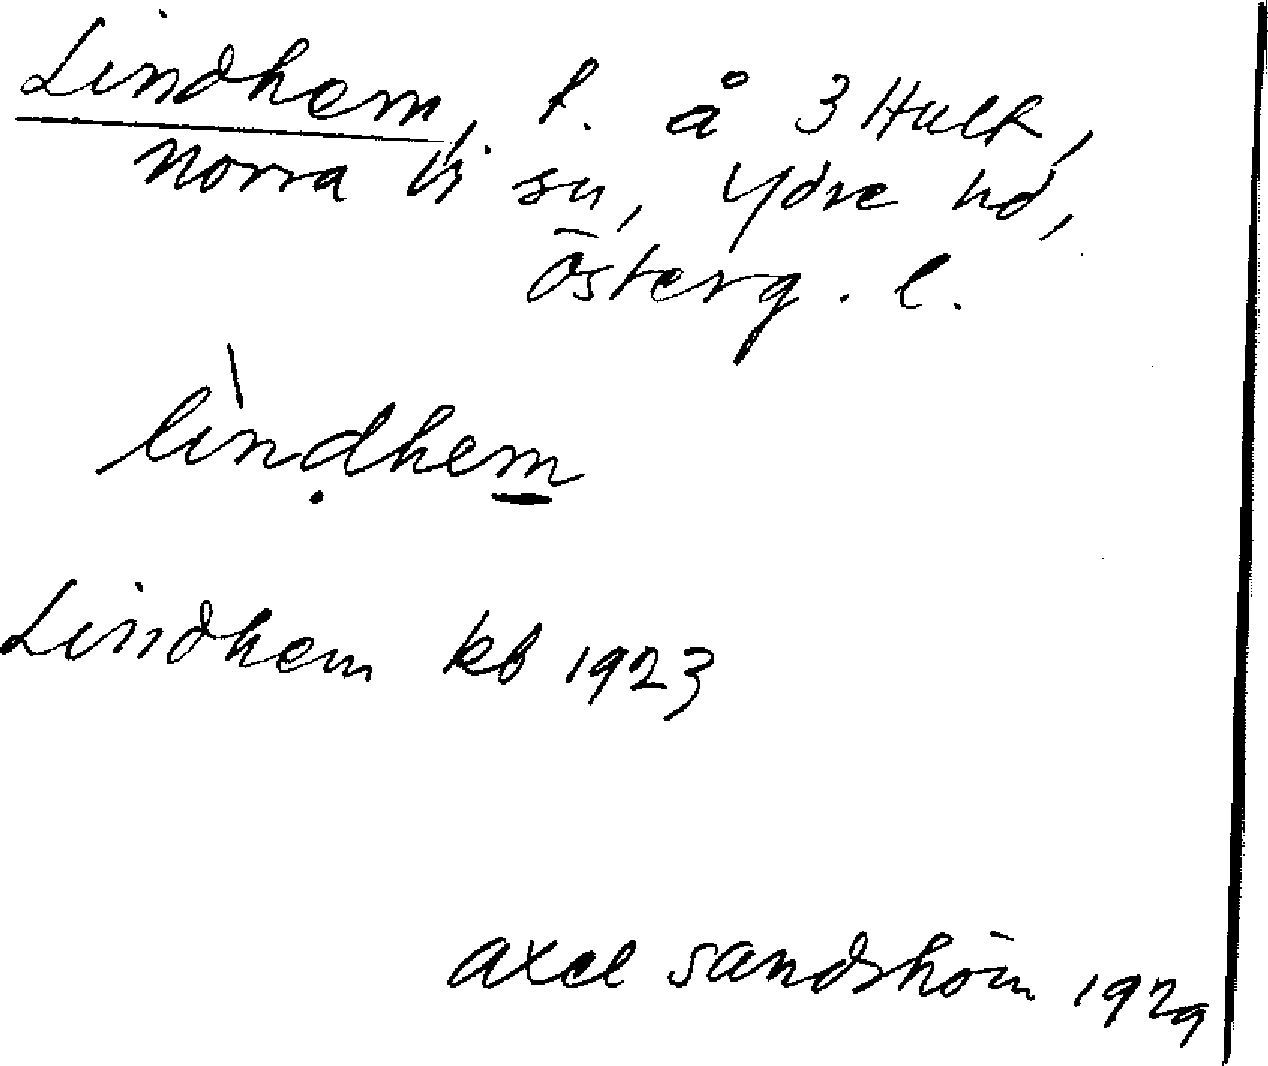 Lindhem, t. å 3 Hult,
Norra Vi sn, Ydre hd,
Österg. l.
lìnḍhem̱
Lindhem kb 1923
Axel Sandström 1929